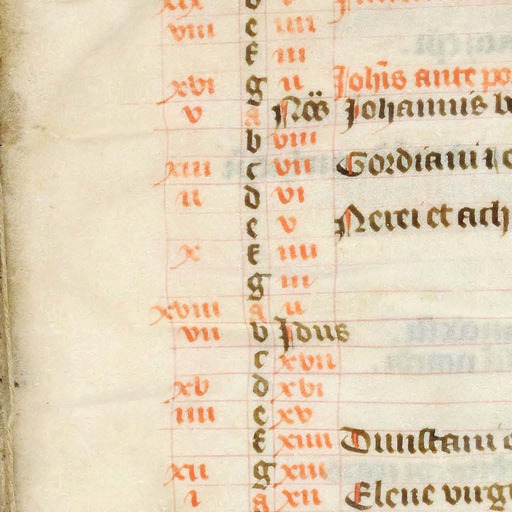 xix d v
viii e iiii
f iii
xvi g ii Joh̄is ante po
v a Nōs Johannis b
b viii
xiii c vii Gordiani ⁊ e
ii d vi
e v Nerei et ach
x f iiii
g iii
xviii a ii
vii b Jdus
c xvii
xv d xvi
iiii e xv
f xiiii Dunstani e
xii g xiii
i a xii Elene virg